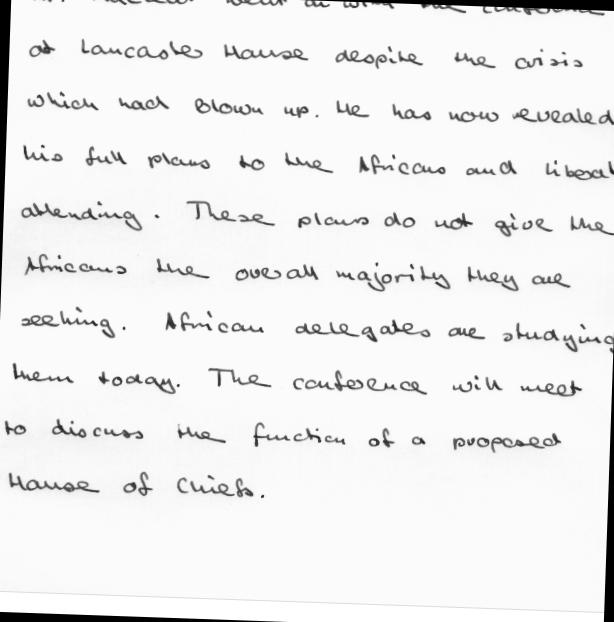 at Lancaster House despite the crisis
which had blown up. He has now revealed
his full plans to the Africans and Liberal
attending. These plans do not give the
Africans the overall majority they are
seeking. African delegates are studying
them today. The conference will meet
to discuss the function of a proposed
House of Chiefs.